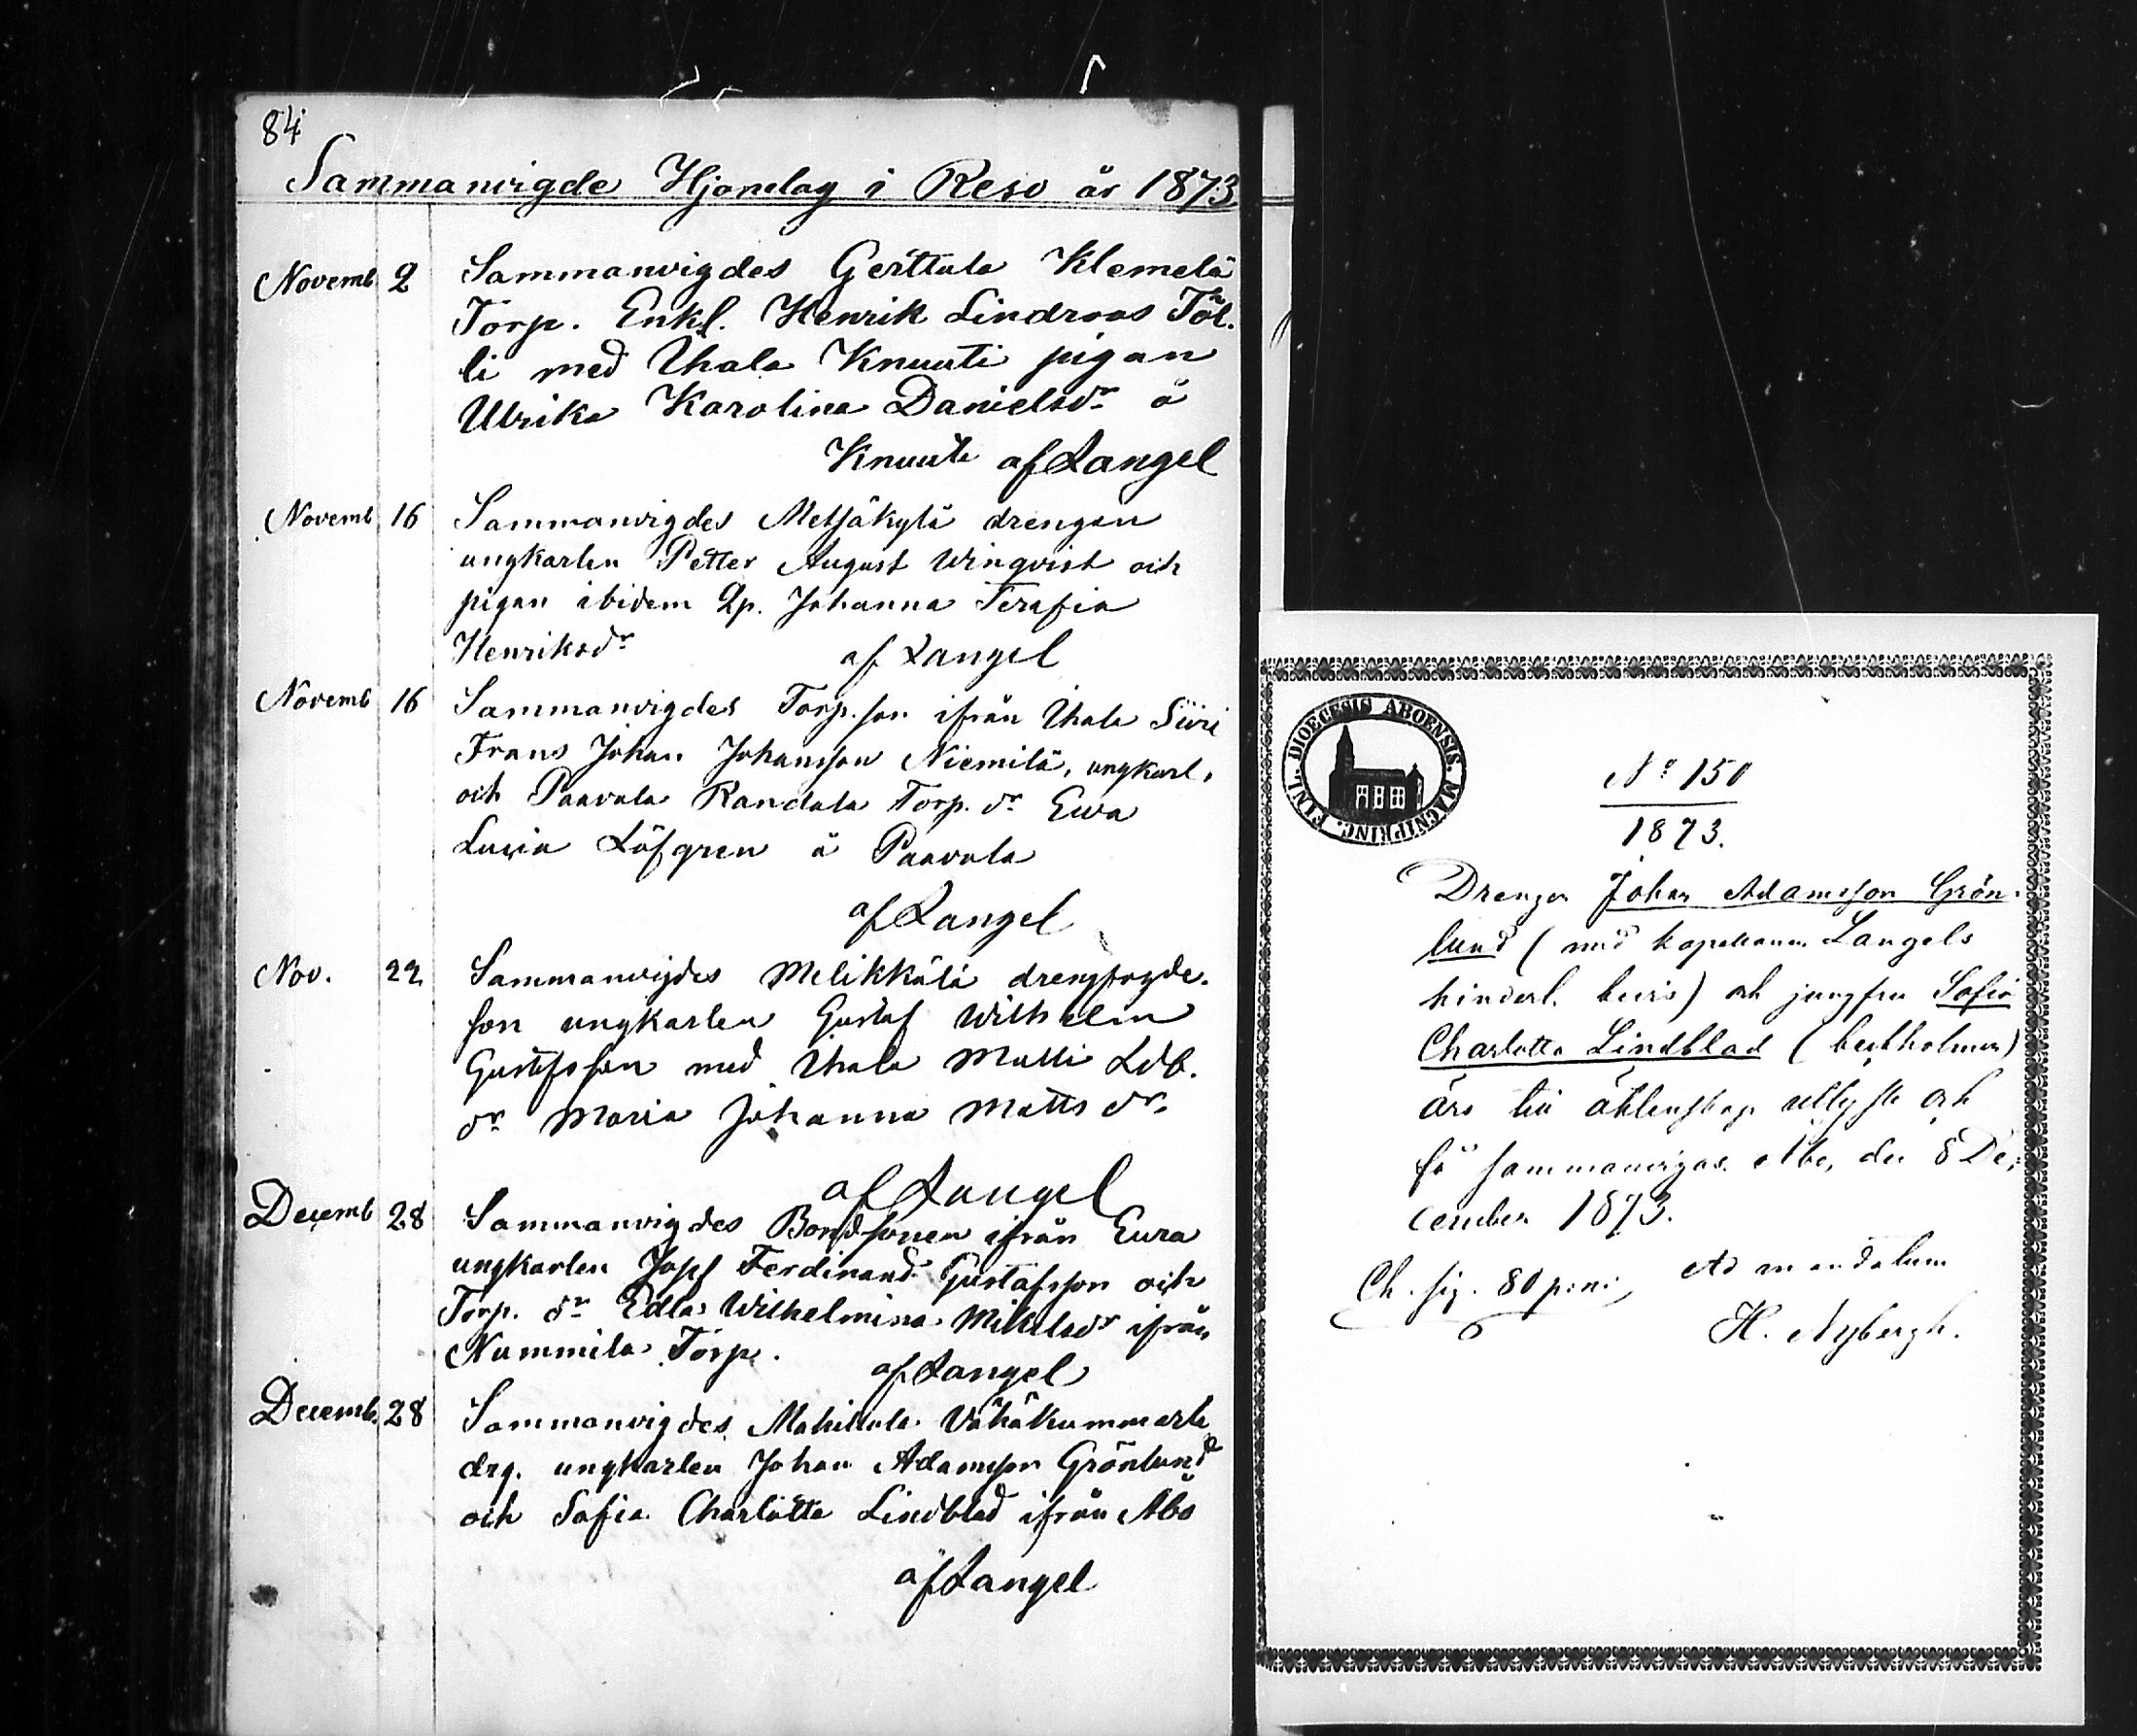 84
Sammanvigde Hjonelag i Reso år 1873
Novemb 2 Sammanvigdes Gerttula Klemelä
Torp. Enkl. Henrik Lindroos Töl-
li med Ihala Knuuti pigan
Ulrika Karolina Danielsdr å
Knuuti af Langel
Novemb 16 Sammanvigdes Metsäkylä drengen
ungkarlen Petter August Winqvist och
pigan ibidem Qp. Johanna Serafia
Henriksdr af Langel
Novemb 16 Sammanvigdes Torp.son ifrån Ihala Siiri
Frans Johan Johansson Niemilä, ungkarl,
och Paavola Randala Torp. dr Ewa
Lovisa Löfgren å Paavola
af Langel
Nov. 22 Sammanvigdes Melikkälä drengfogde-
son ungkarlen Gustaf Wilhelm
Gustafsson med Ihala Matti Ldb.
dr Maria Johanna Matts dr.
af Langel
Decemb 28 Sammanvigdes Bondsonen ifrån Eura
ungkarlen Josef Ferdinand Gustafsson och
Torp. dr Edla Wilhelmina Mikelsdr ifrån
Nummila Torp.
af Langel
Decemb. 28 Sammanvigdes Mahittula Vähäkummeli
drg. ungkarlen Johan Adamsson Grönlund
och Sofia Charlotta Lindblad ifrån Åbo
af Langel
DIOECESIS ABOENSIS. MAGNIPRINC. FINL.
No 150
1873.
Drengen Johan Adamsson Grön-
lund (med kapellanen Langels
hinderl. bevis) och jungfru Sofia
Charlotta Lindblad
äro till äktenskap utlyste och
få sammanvigas. Åbo, den 8 De-
cember 1873.
Ch. sig. 80 p:ni;
Ad mandatum
H. Nybergh.